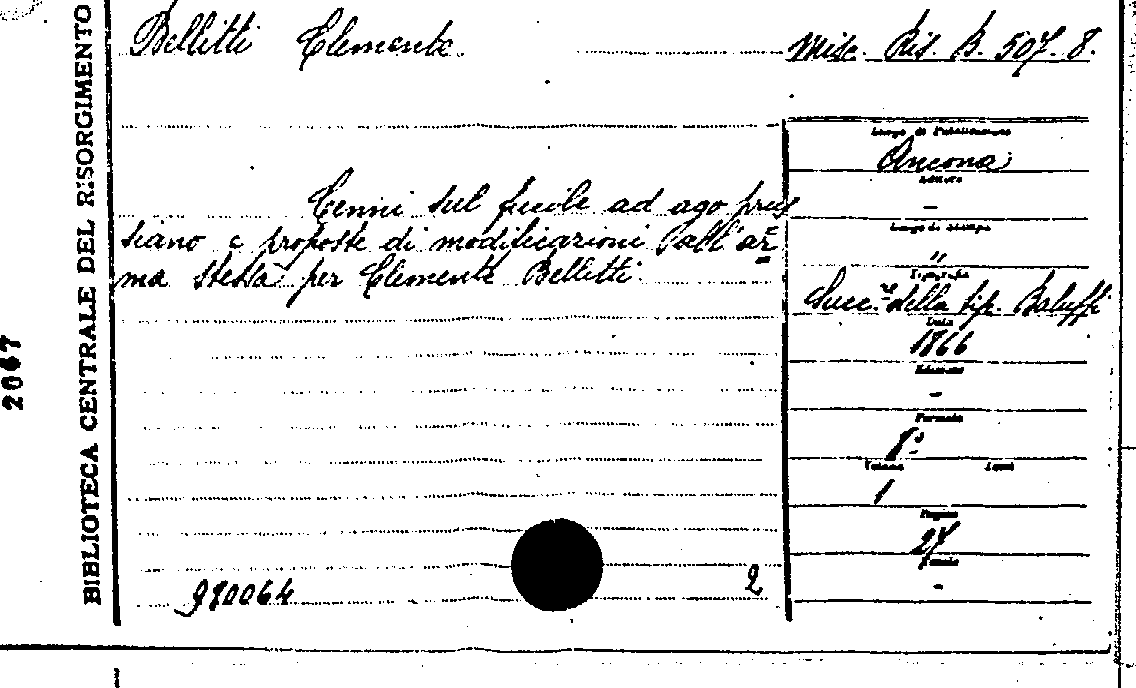 Bellitti Clemente.
Misc. Ris. B. 507. 8.
Luogo di Pubblicazione
Ancona
Editore
–
Cenni sul fucile ad ago prus
siano e proposte di modificazioni all'ar=
ma stessa per Clemente Bellitti.
Luogo di stampa
"
Tipografia
Succ.ri della tip. Baluffi
Data
1866
Edizione
-
Formato
8°
Volume
1
Pagine
27
-
990064
2
BIBLIOTECA CENTRALE DEL RISORGIMENTO
2067